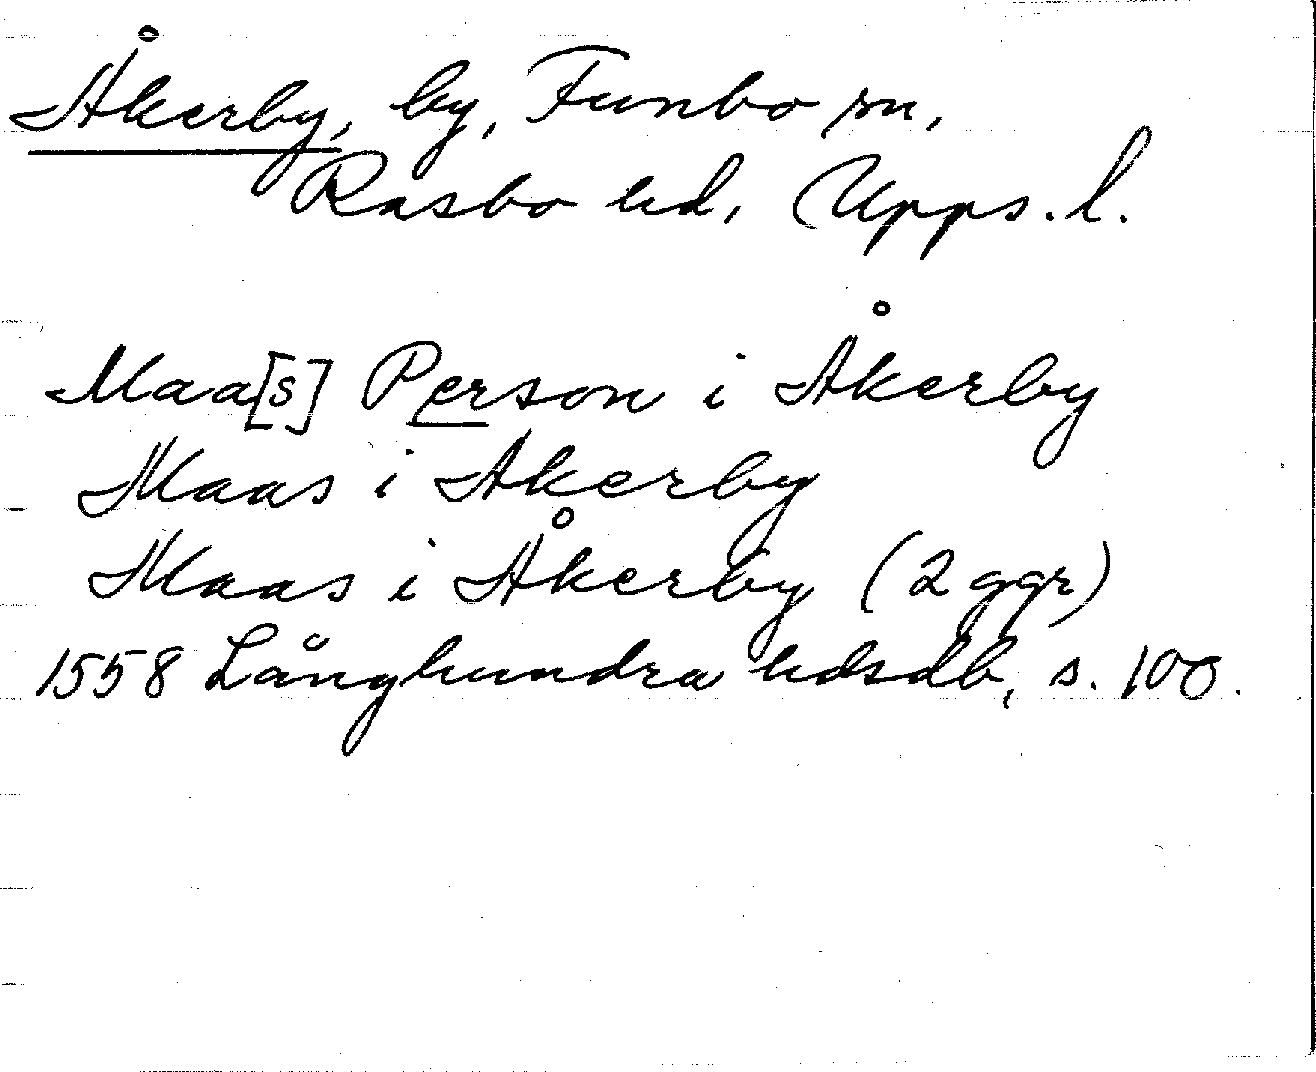 Åkerby, by, Funbo sn,
Rasbo hd, Upps. l.
Maa[s] Person i Åkerby
Maas i Akerby
Maas i Åkerby (2 ggr)
1558 Långhundra hdsdb, s. 100.